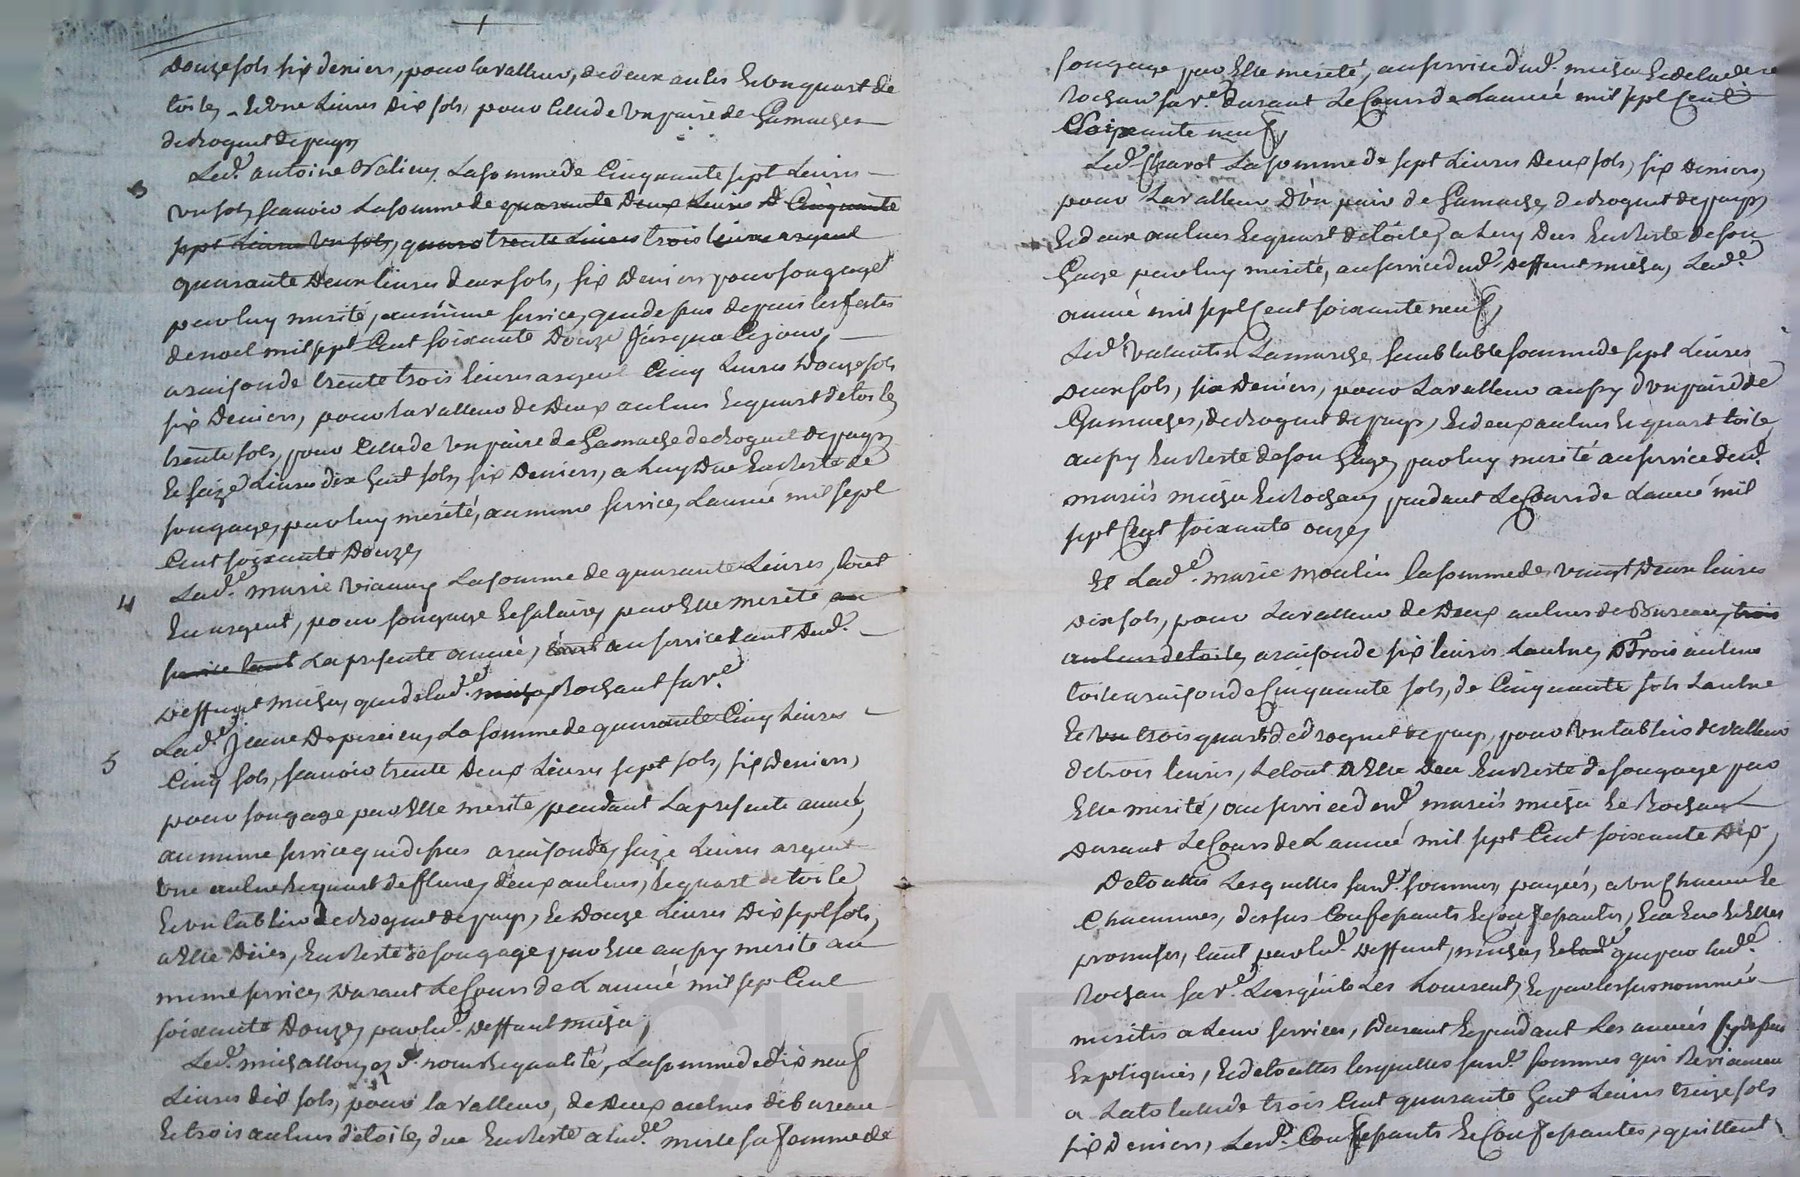 Douze sols six deniers, pour la valleur, de deux aulnes Et un quart de
toile, Et une Livres Dix sols, pour Celle de Un paire de Gamaches
de droguet de pays
3 Led. antoine Valieny La somme de Cinquante sept Livres
un sols, scavoir La somme de quarante Deux Livres D Cinquante
sept Livres Un sols, quara trente Livres trois livres argent
quarante Deux livres deux sols, six Deniers pour son gage
par luy merité, au même service, que de sus depuis les festes
de noel mil sept Cent soixante Douze Jusqua Ce jour,
a raison de trente trois livres argent Cinq Livres Douze sols
six Deniers, pour la valleur de Deux aulnes Et quart de toile
trente sols, pour Celle de Un paire de Gamache de droguet de pays
Et seize Livres dix huit sols, six Deniers, a Luy Due En Reste de
son gage, par luy merité, au meme service, L'année mil sept
Cent soixante Douze,
4 Lad.e marie Vianney La somme de quarante Livres, tout
En argent, pour son gage Et salaire, par Elle merité au
service tant La presente année, tant au service tant Dud.
Deffunt micha, que de lad.e micha, Rochant sa v.e
5 Lad.e Jeanne Deperieu, La somme de quarante Cinq Livres
Cinq sols, scavoir trente Deux Livres sept sols, six Deniers,
pour son gage par Elle merité, pendant La presente année,
au meme service que de sus a raison de, seize Livres argent
Une aulne Et quart de fleuret, deux aulnes, Et quart de toile
Et un tablier de droguet de pays, Et Douze Livres Dix sept sols,
a Elle Dües, En Reste de son gage par Elle aussy merité au
meme service, Durant Le Cours de L'année mil sept Cent
soixante Douze, par led. Deffunt micha,
Led. michallon, es nom Et qualité, La somme de dix neuf
Livres dix sols, pour la valleur, de Deux aulnes de bureau
Et trois aulnes de toile, due En Reste a lad.e mere sa femme de
son gage par Elle merité, au service dud. micha Et de lade
Rochan sa v.e durant Le Cours de L'année mil sept Cent
soixante neuf,
Led. Charot La somme de sept Livres Deux sols, six Deniers,
pour La valleur D'un paire de Gamache, de droguet de pays
Et deux aulnes Et quart de toile, a Luy Dues En Reste de son
Gage par luy merité, au service dud. Deffunt micha, Lad.e
année mil sept Cent soixante neuf,
Led. Valantin Lamarche semblable somme de sept Livres
Deux sols, six Deniers, pour La valleur aussy d'un paire de
Gamaches, de droguet de pays, Et deux aulnes Et quart toile,
aussy En Reste de son Gage, par luy merité au service desd.
mariés micha Et Rochan, pendant Le Cours de L'année mil
sept Cent soixante onze,
Et Lad.e marie moulin la somme de vingt Deux livres
Dix sols, pour La valleur de Deux aulnes de Bureau, trois
aulnes de toile, a raison de six livres L'aulne, Trois aulnes
toile a raison de Cinquante sols, de Cinquante sols L'aulne
Et un trois quart de droguet de pays, pour Un tablier de valleur
de trois livres, Le tout a Elle Due En Reste de son gage par
Elle merité, au service desd. mariés micha Et Rochan
Durant Le Cours de L'année mil sept Cent soixante Dix,
De touttes Lesquelles susd. sommes, payées, a un Chacun Et
Chacunnes, desus Confessants Et Confessantes, Et a Eux Et Elles
promises, tant par led. Deffunt, micha, Et lad.e que par lad.e
Rochan sa v.e Lorsqu'ils Les Louerent, Et par les sus nommés
merités a Leur service, Durant Et pendant Les années sy desus
Expliquées, Et de touttes lesquelles susd. sommes qui Reviennent
a La totalité de trois Cent quarante huit Livres treize sols
six Deniers, Lesd. Confessants Et Confessantes, quittent